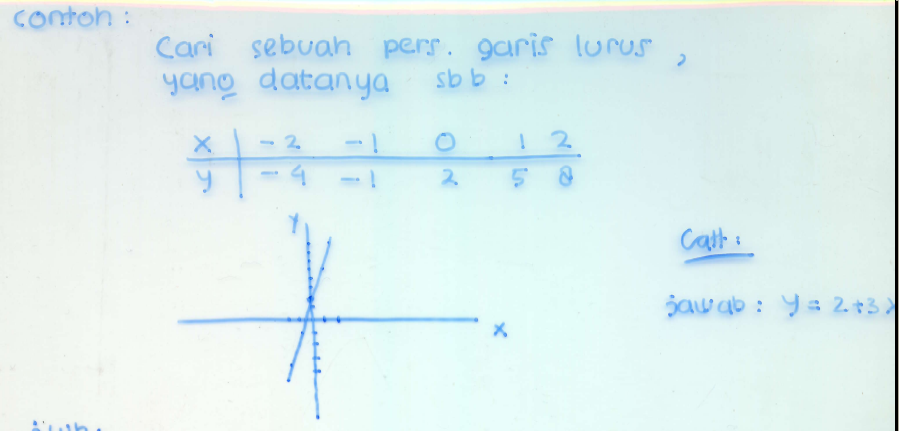 contoh :
Cari sebuah pers. garis lurus ,
yang datanya sbb :
x -2 -1 0 1 2
y -4 -1 2 5 8
y
x
Catt :
jawab : y = 2+3